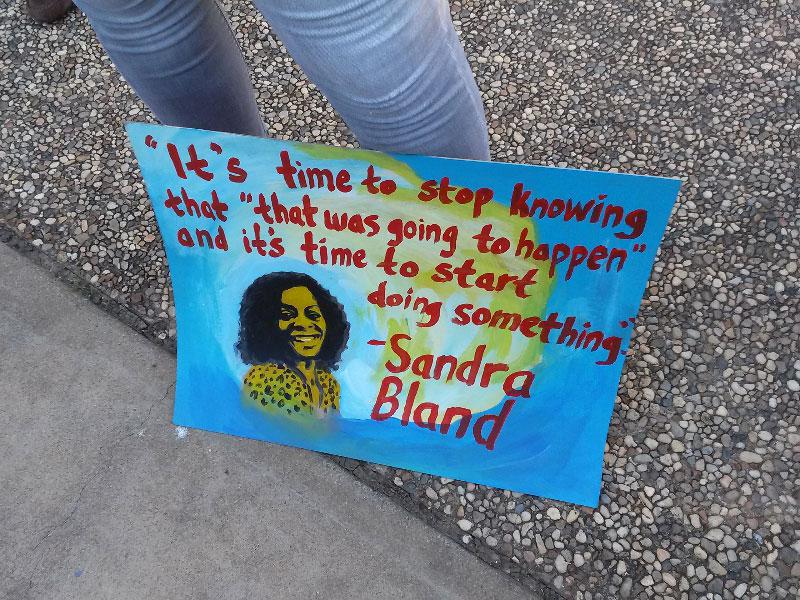 "It's time to stop knowing
that "that was going to happen"
and it's time to start
doing something."
-Sandra
Bland